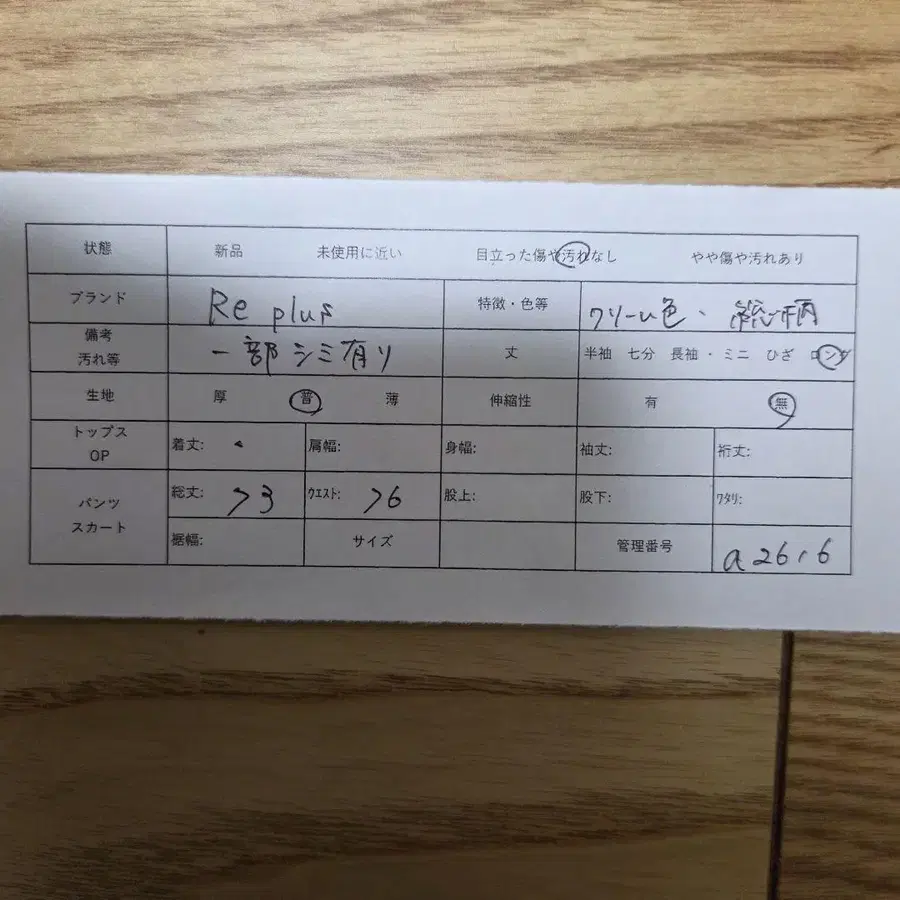 状態 新品 未使用に近い 目立った傷や汚れなし やや傷や汚れあり
ブランド Re plus 特徴・色等 クリーム色、総柄
備考
汚れ等 一部シミ有り 丈 半袖 七分 長袖・ミニ ひざ ロング
生地 厚 普 薄 伸縮性 有 無
トップス
OP 着丈: 肩幅: 身幅: 袖丈: 裄丈:
パンツ
スカート 総丈: 73 ウエスト: 76 股上: 股下: ワタリ:
裾幅: サイズ 管理番号 a2616